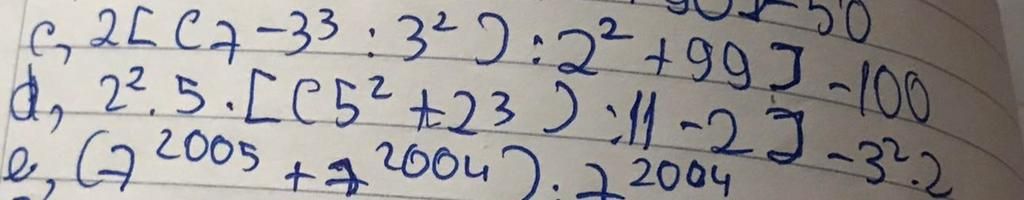 c, 2[(7-3³:3²):2²+99]-100
d, 2².5.[(5²+23):11-2]-3².2
e, (7²⁰⁰⁵+7²⁰⁰⁴):7²⁰⁰⁴